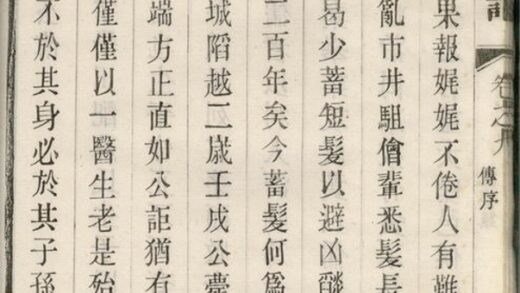 卷之九
傳序
果報娓娓不倦人有難
亂市井駔儈輩悉髮長
曷少蓄短髮以避凶燄
二百年矣今蓄髮何爲
城陷越二歲壬戌公薨
端方正直如公詎猶有
僅僅以一醫生老是殆
不於其身必於其子孫